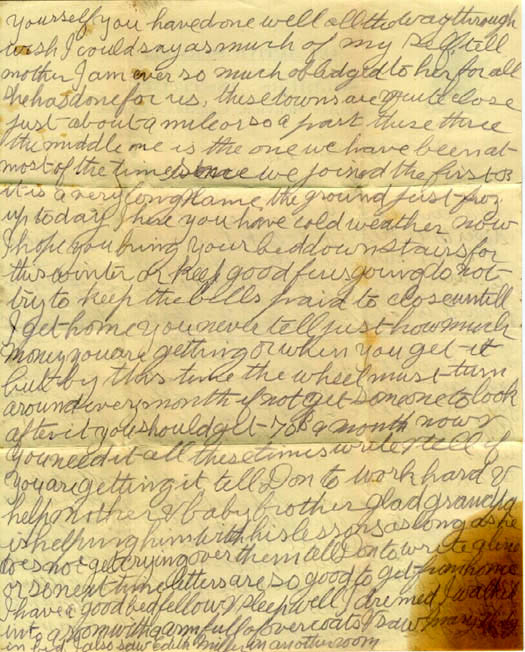 yourself you have done well all the way through
wish I could say as much of my self tell
mother I am ever so much obledged to her for all
she has done for us, these towns are quite close
just about a mile or so a part these three
the middle one is the one we have been at
most of the time since we joined the first 
it is a very long name the ground first froz
up today hope you have cold weather now
I hope you bring your bed down stairs for
this winter or keep good fires going to not
try to keep the bills paid to close untill
I get home you never tell just how much
money you are getting or when you get it
but by this time the wheel must turn
around every month if not get someone to look
after it you should get a month now &
you need it all these times write & tell if
you are getting it tell Don to work hard &
help mother & baby brother glad grandpa
is helping him with his lessons as long as he
does not get crying over them all Don to write a line
or so next time letters are so good to get from home
I have a good bed fellow & sleep well I dremed I walked
into a room with a arm full of overcoats I saw
in bed I also saw edith in another room